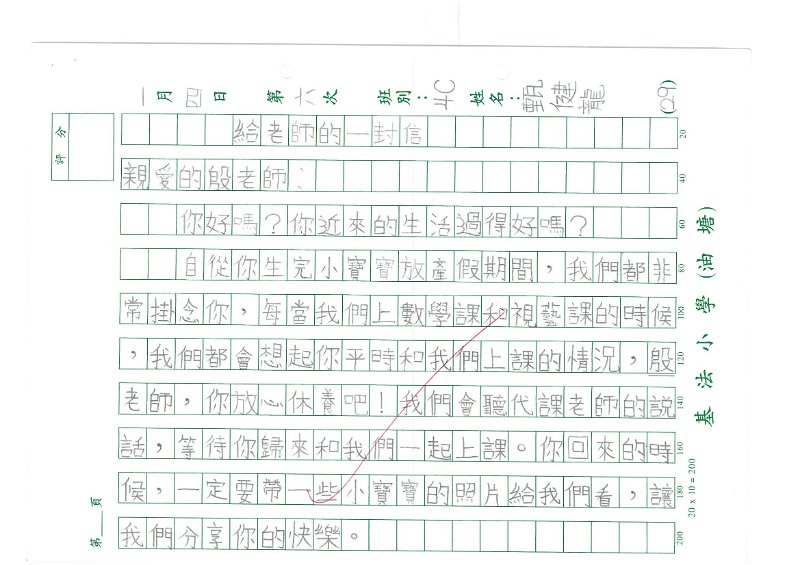 一月四日 第六次 班別：4C 姓名：甄健龍 (29)
評分
給老師的一封信
20
親愛的殷老師：
40
你好嗎？你近來的生活過得好嗎？
60
自從你生完小寶寶放產假期間，我們都非
80
常掛念你，每當我們上數學課和視藝課的時候
100
，我們都會想起你平時和我們上課的情況，殷
120
老師，你放心休養吧！我們會聽代課老師的說
140
話，等待你歸來和我們一起上課。你回來的時
160
候，一定要帶一些小寶寶的照片給我們看，讓
180
我們分享你的快樂。
200
第 頁
20 x 10 = 200
基法小學(油塘)